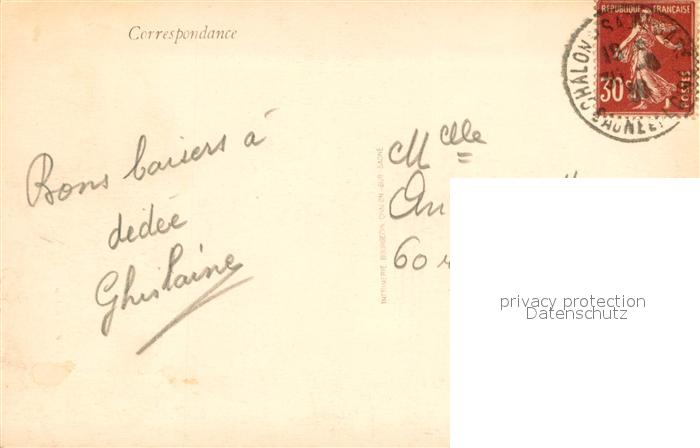 Correspondance
RÉPUBLIQUE FRANÇAISE
30c
POSTES
CHALON-S-SAONE
Bons baisers à
dédée
Ghislaine
Mlle
60
IMPRIMERIE BOURGEOIS CHALON-SUR-SAONE
privacy protection
Datenschutz